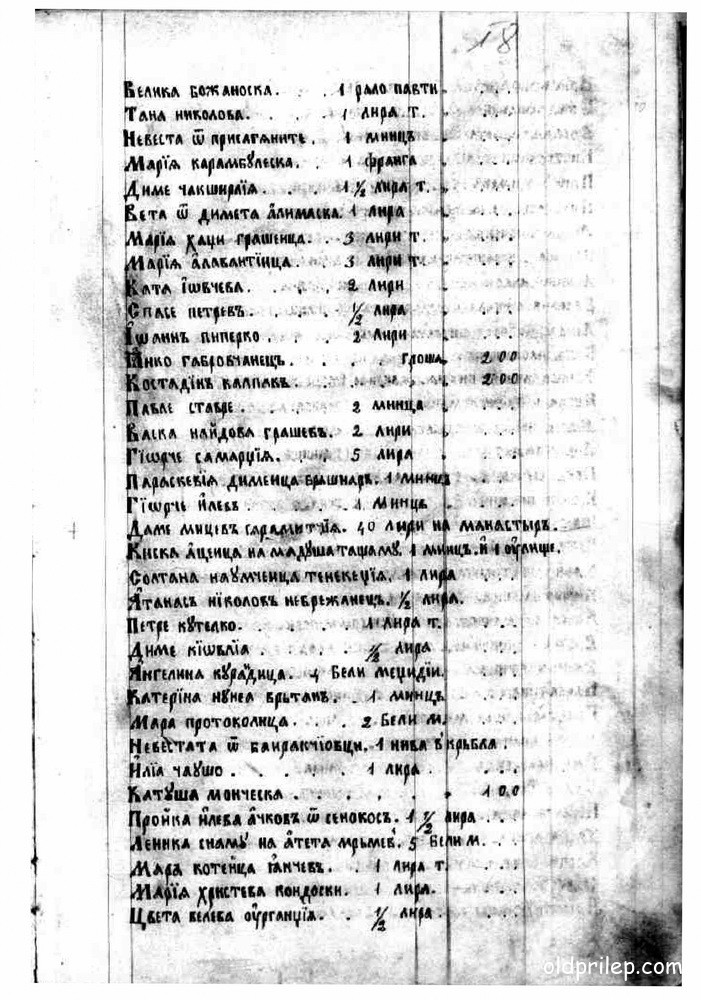 18
Велика божаноска. . . 1 рало павти . . . .
Тана николова. . . . 1 лира т. . . . .
Невеста ѿ присагяните . 1 минцъ . . . .
Марїя карамбꙋлеска. . 1 франга . . . .
Диме чакширлїя . . . 1 1/2 лира т. . . . .
Вета ѿ димета а҆лимаска. 1 лира . . . .
Марїя хаџи грашеица. . 3 лири т. . . . .
Марїя а҆лавантїица. . 3 лири т. . . . .
Ката і҆ѡвчева. . . . 2 лири . . . .
Спасе петревъ. . . . 1/2 лира . . . .
І҆ѡаннъ пиперко . . . 2 лири . . . .
Ꙗ҆нко габровчанецъ. . . . гроша „ 200
Костадїнъ калпакъ. . . . . „ 200
Павле ставре . . . . 2 минца . . . .
Васка найдова грашевъ. . 2 лири . . . .
Гїѡрче самарџїя. . . . 5 лира . . . .
Параскевїя димеица брашнаръ. 1 минцъ . . .
Гїѡрче и҆левъ . . . . 1 минцъ . . . .
Даме мицевъ сарамитчїя. 40 лири на манастыръ.
Киска а҆цеица на мадꙋша ташамꙋ. 1 минцъ. и҆ 1 оу҆лище.
Солтана наꙋмчеица тенекеџїя. 1 лира . . .
А҆танасъ нїколовъ небрежанецъ. 1/2 лира.
Петре кꙋтелко. . . . . 1 лира т. . . .
Диме кїѡвлїа . . . . . 1/2 лира . . . .
А҆нгелина кꙋрадица. . 4 Бели меџидїи.
Катерїна нꙋнеа врьтанъ. . 1 минцъ . . .
Мара протоколица. . . . 2 Бели м. . . .
Невестата ѿ баиракчїовци. 1 нива в крьбла .
И҆лїа чаꙋшо . . . . . 1 лира . . . .
Катꙋша монческа . . . . . „ 100
Пройка и҆лева а҆чковъ ѿ сенокосъ. 1 1/2 лира . . .
Леника снамꙋ на а҆тета мрьмевꙿ. 5 Бели м. . . .
Мара котеица ꙗ҆нчевъ. . . 1 лира т. . . .
Марїя христева кондоски. . 1 лира. . . .
Цвета велева оу҆рганџїя. . . 1/2 лира . . . .
oldprilep.com